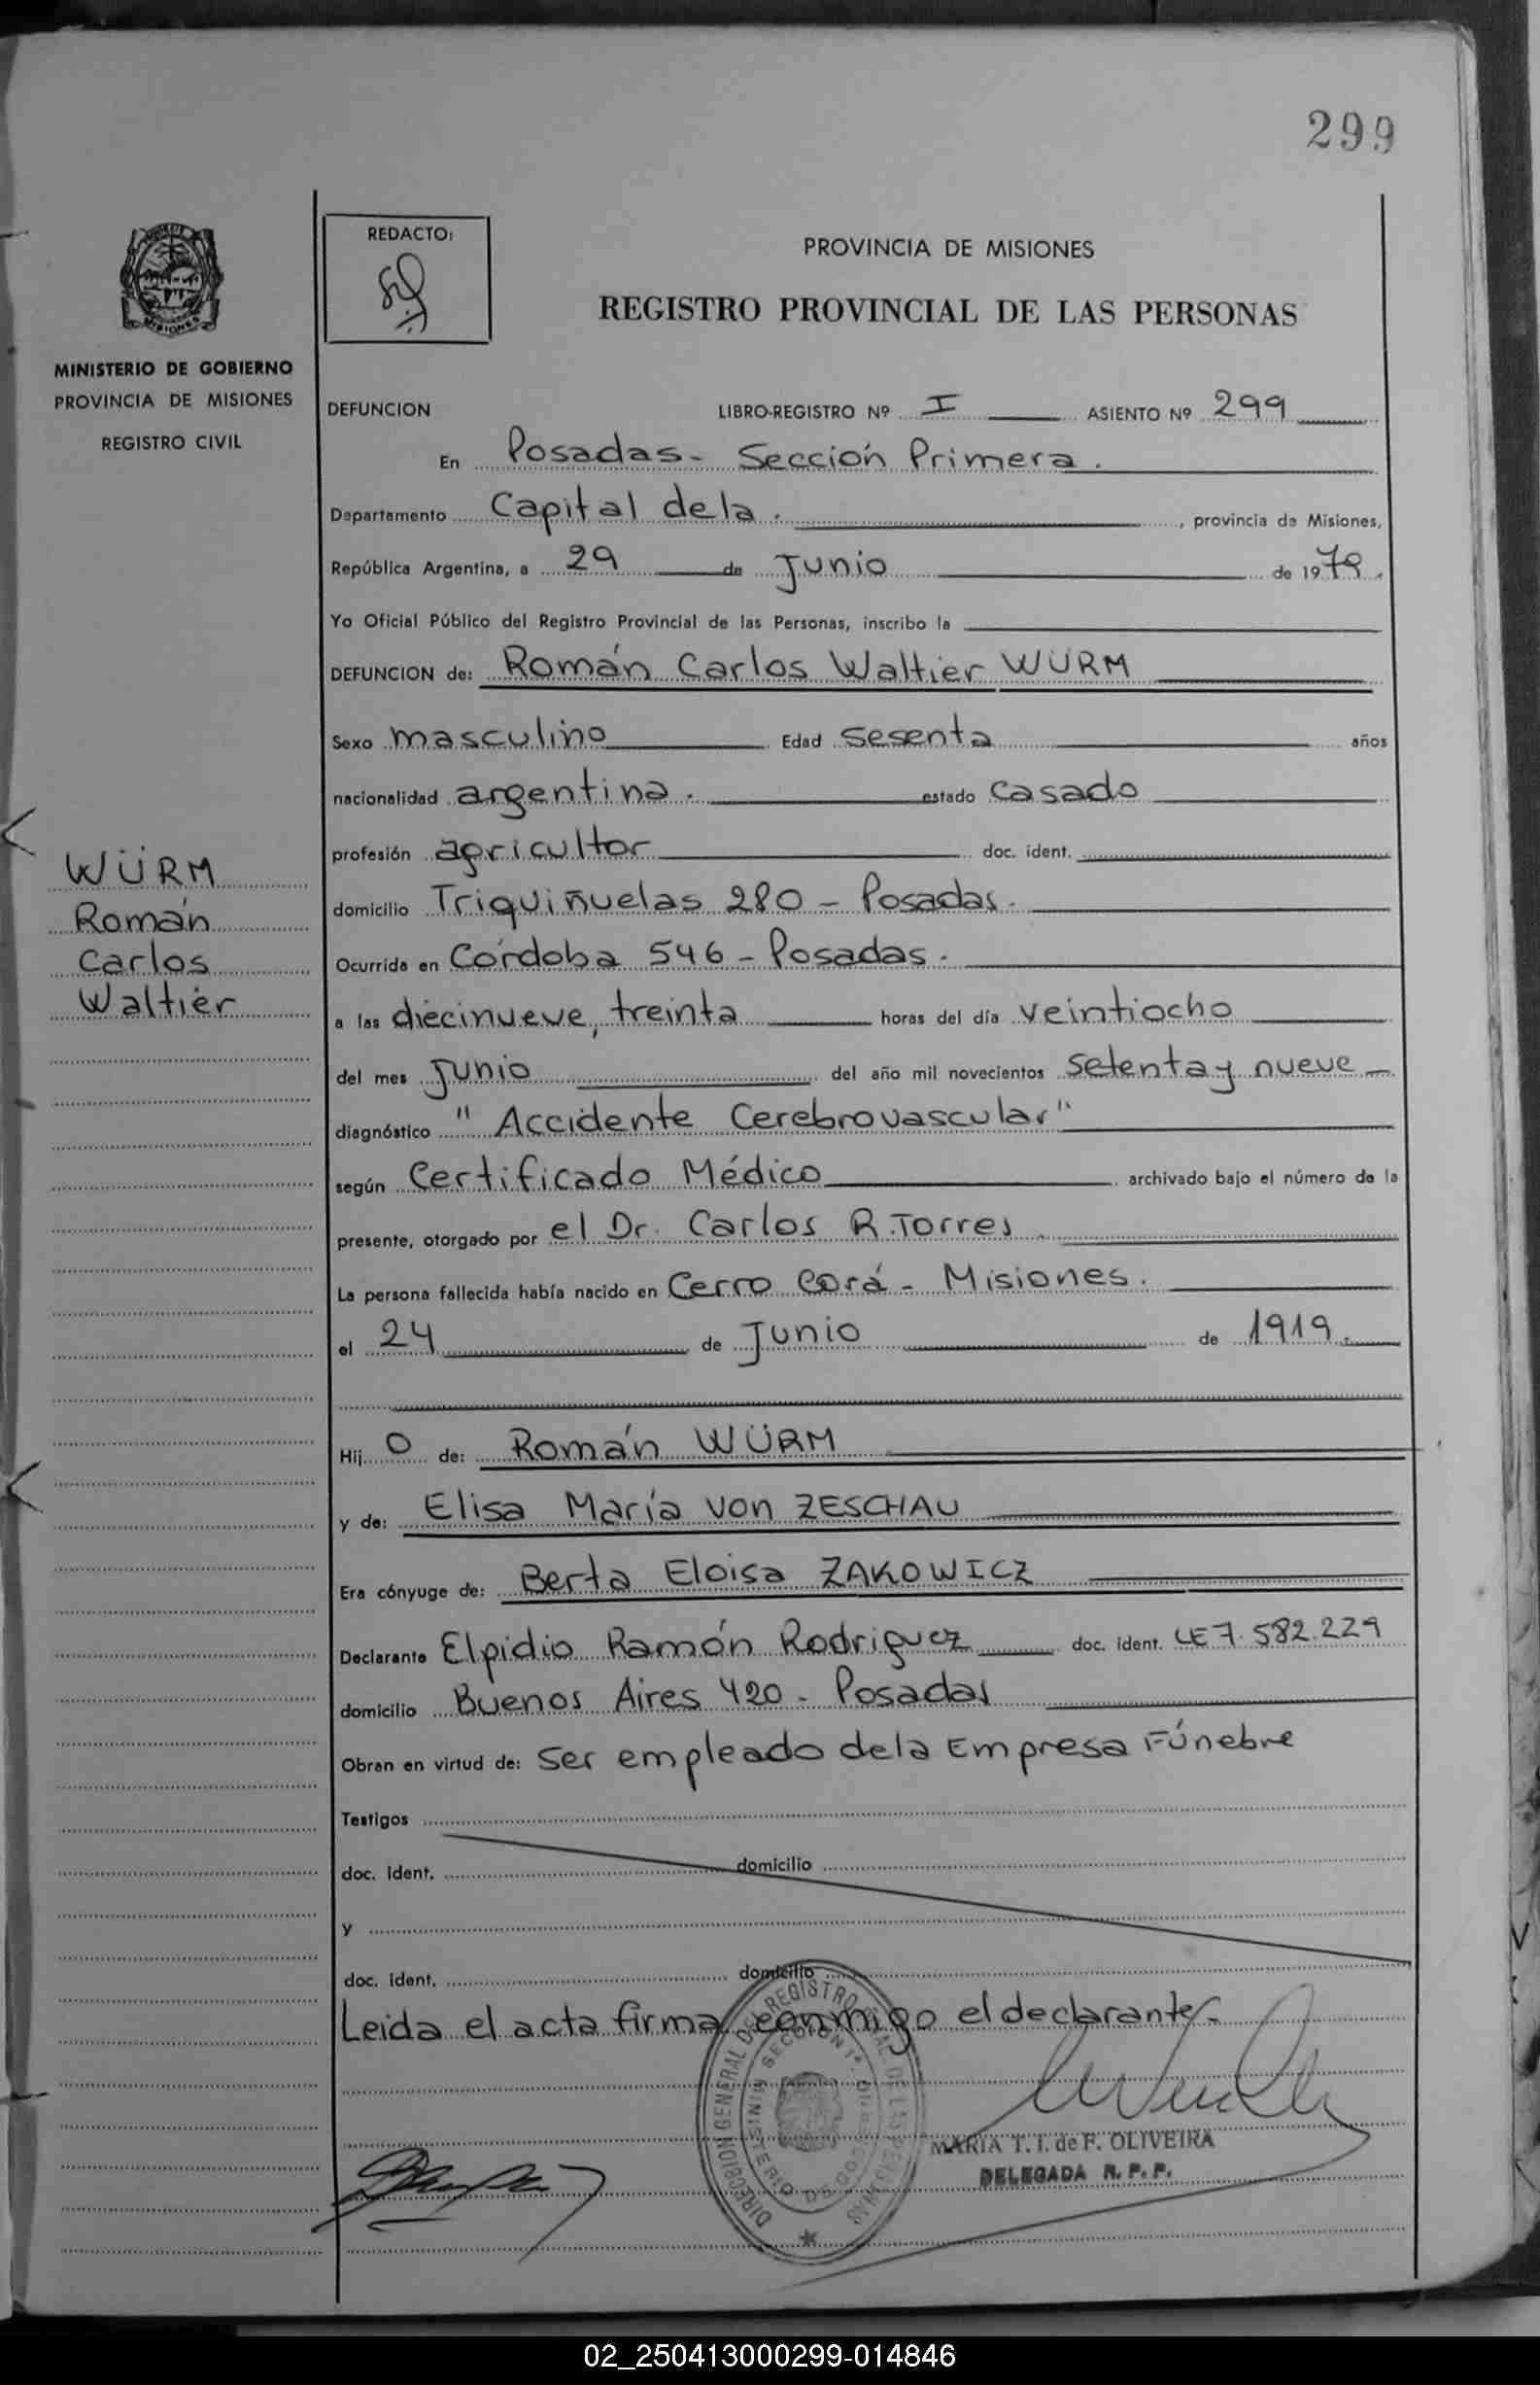 299
REDACTO:
PROVINCIA DE MISIONES
REGISTRO PROVINCIAL DE LAS PERSONAS
MISIONES
MINISTERIO DE GOBIERNO
PROVINCIA DE MISIONES
REGISTRO CIVIL
DEFUNCION LIBRO-REGISTRO Nº I ASIENTO Nº 299
En Posadas - Sección Primera.
Departamento Capital dela. , provincia de Misiones,
República Argentina, a 29 de Junio de 1979.
Yo Oficial Público del Registro Provincial de las Personas, inscribo la
DEFUNCION de: Román Carlos Waltier WÜRM
Sexo masculino Edad sesenta años
nacionalidad argentina. estado casado
profesión agricultor doc. ident.
domicilio Triquiñuelas 280 - Posadas.
Ocurrida en Córdoba 546 - Posadas.
a las diecinueve, treinta horas del día veintiocho
del mes Junio del año mil novecientos setenta y nueve -
diagnóstico "Accidente Cerebrovascular"
según Certificado Médico archivado bajo el número de la
presente, otorgado por el Dr. Carlos R. Torres.
La persona fallecida había nacido en Cerro Corá - Misiones.
el 24 de Junio de 1919.
Hij o de: Román WÜRM
y de: Elisa María von ZESCHAU
Era cónyuge de: Berta Eloisa ZAKOWICZ
Declarante Elpidio Ramón Rodriguez doc. ident. LE 7.582.229
domicilio Buenos Aires 420 - Posadas
Obran en virtud de: ser empleado dela Empresa Fúnebre
Testigos
doc. ident. domicilio
y
doc. ident. domicilio
Leida el acta firma conmigo el declarante.-
WÜRM
Román
Carlos
Waltier
MARIA T. I. de F. OLIVEIRA
DELEGADA R. P. P.
02_250413000299-014846